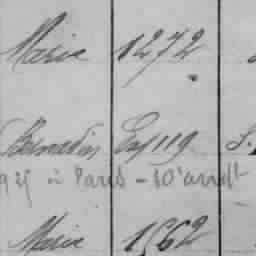 Marie 1272
Bernardin Exp 119 S.
925 à Paris - 10e arrdt
Marie 1562